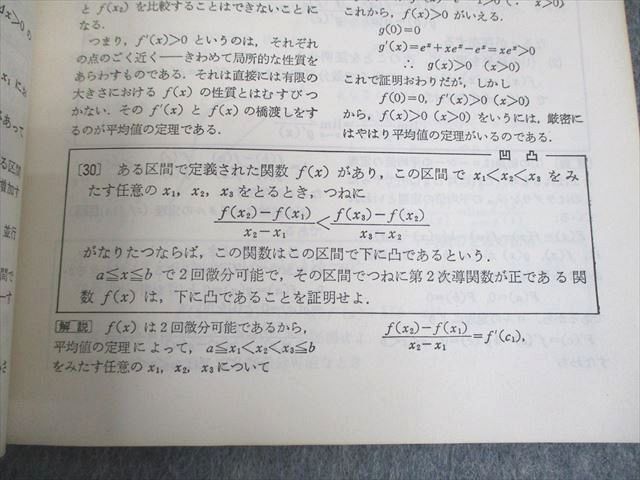 と f(x₂) を比較することはできないことに
なる.
つまり, f′(x)>0 というのは, それぞれ
の点のごく近く――きわめて局所的な性質を
あらわすものである. それは直接には有限の
大きさにおける f(x) の性質とはむすびつ
かない. その f′(x) と f(x) の橋渡しをす
るのが平均値の定理である.
これから, f(x)>0 がいえる.
g(0)=0
g′(x)=eˣ+xeˣ−eˣ=xeˣ>0
∴ g(x)>0 (x>0)
これで証明おわりだが, しかし
f(0)=0, f′(x)>0 (x>0)
から, f(x)>0 (x>0) をいうには, 厳密に
はやはり平均値の定理がいるのである.
凹 凸
[30] ある区間で定義された関数 f(x) があり, この区間で x₁<x₂<x₃ をみ
たす任意の x₁, x₂, x₃ をとるとき, つねに
(f(x₂)−f(x₁))/(x₂−x₁)<(f(x₃)−f(x₂))/(x₃−x₂)
がなりたつならば, この関数はこの区間で下に凸であるという.
a≦x≦b で2回微分可能で, その区間でつねに第2次導関数が正である関
数 f(x) は, 下に凸であることを証明せよ.
[解 説] f(x) は2回微分可能であるから,
平均値の定理によって, a≦x₁<x₂<x₃≦b
をみたす任意の x₁, x₂, x₃ について
(f(x₂)−f(x₁))/(x₂−x₁)=f′(c₁),